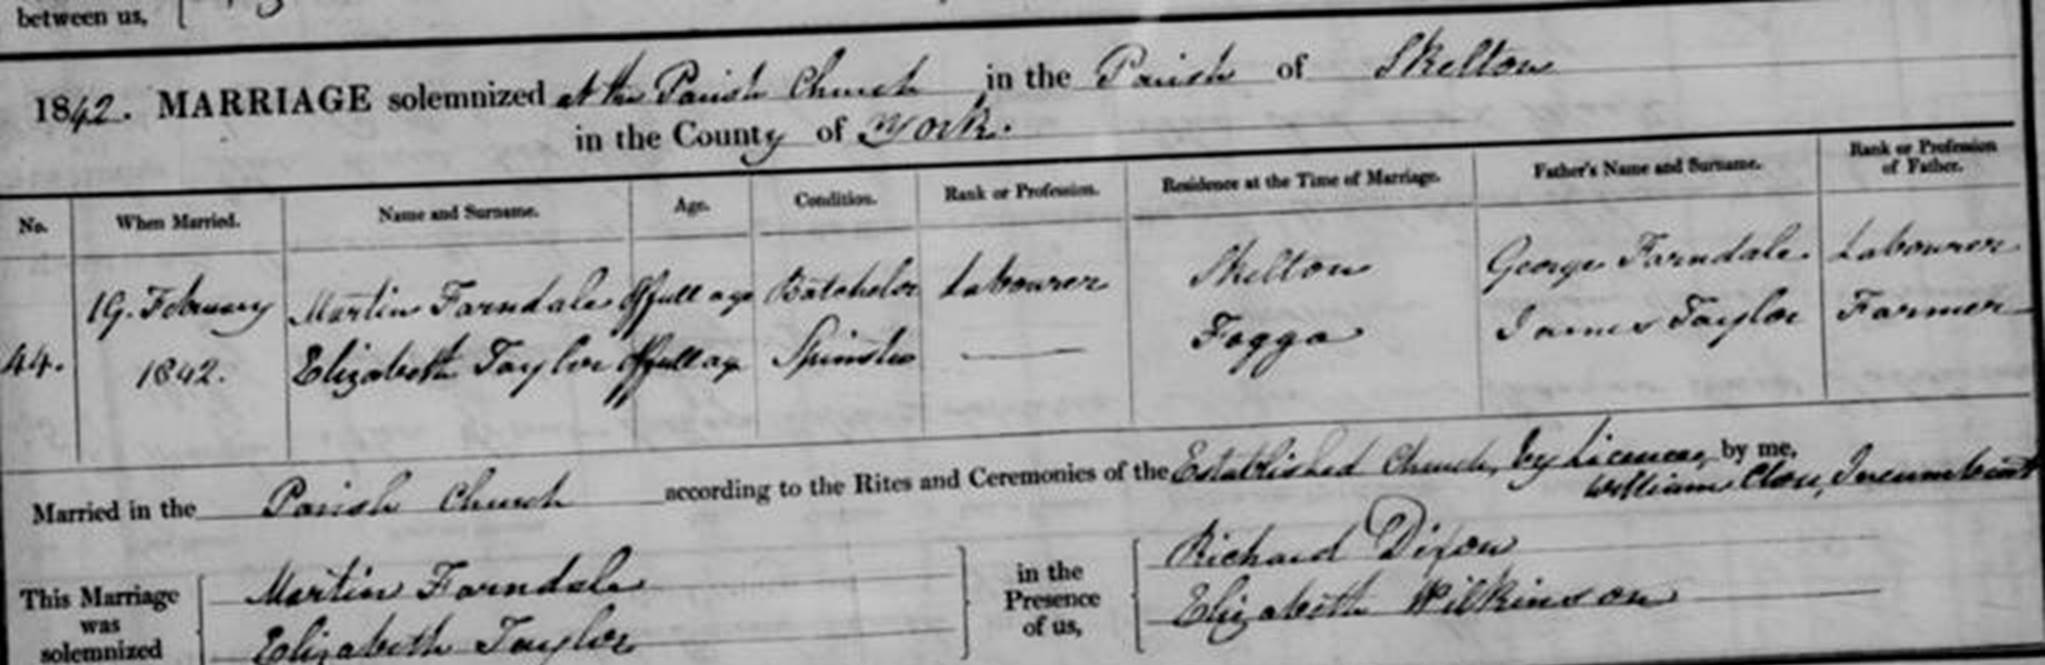 between us,
1842. MARRIAGE solemnized at the Parish Church in the Parish of Skelton
in the County of York.
No. When Married. Name and Surname. Age. Condition. Rank or Profession. Residence at the Time of Marriage. Father's Name and Surname. Rank or Profession of Father.
19. February Martin Farndale Of full age Batchelor Labourer Skelton George Farndale Labourer
44. 1842. Elizabeth Taylor Of full age Spinster Fogga James Taylor Farmer
Married in the Parish Church according to the Rites and Ceremonies of the Established Church, by Licence, by me,
William Close, Incumbent
This Marriage was solemnized Martin Farndale in the Presence of us, Richard Dixon
Elizabeth Taylor Elizabeth Wilkinson